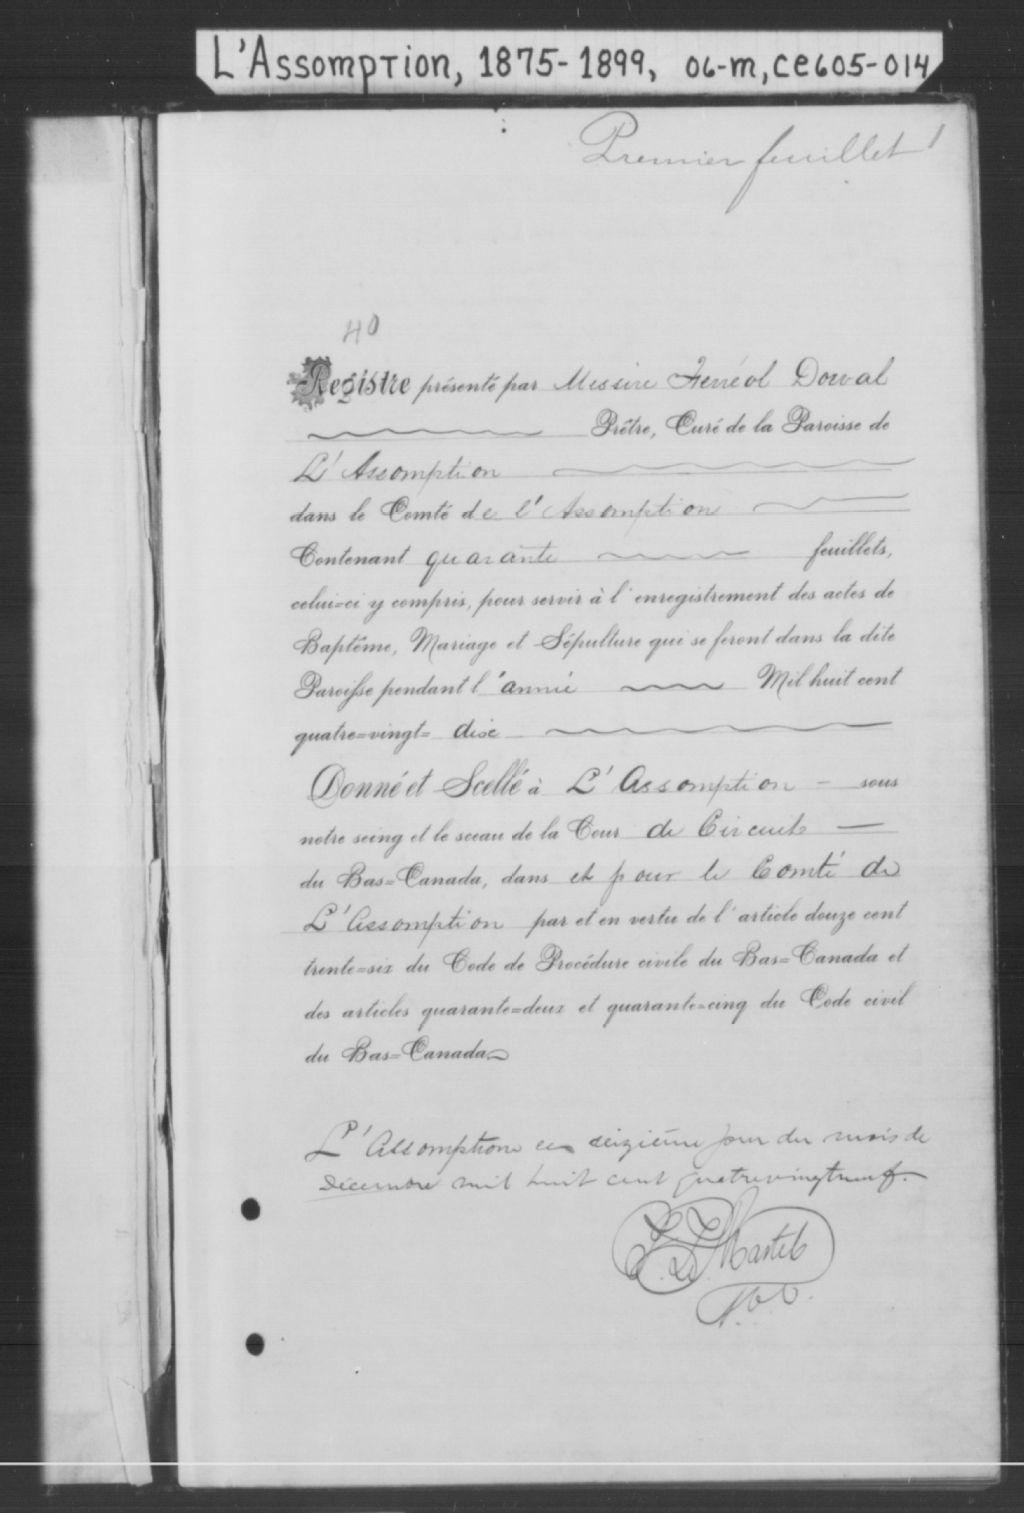 L'Assomption, 1875-1899, 06-m, ce605-014
Premier feuillet 1
40
Registre présenté par Messire Ferréol Dorval
Prêtre, Curé de la Paroisse de
L'Assomption
dans le Comté de l'Assomption
Contenant quarante feuillets,
celui=ci y compris, pour servir à l'enregistrement des actes de
Baptême, Mariage et Sépulture qui se feront dans la dite
Paroisse pendant l'année Mil huit cent
quatre=vingt= dix
Donné et Scellé à L'Assomption - sous
notre seing et le sceau de la Cour de Circuit
du Bas=Canada, dans et pour le Comté de
L'Assomption par et en vertu de l'article douze cent
trente=six du Code de Procédure civile du Bas=Canada et
des articles quarante=deux et quarante=cinq du Code civil
du Bas=Canada
L'Assomption ce seizième jour du mois de
Décembre mil huit cent quatrevingtneuf.
Martel